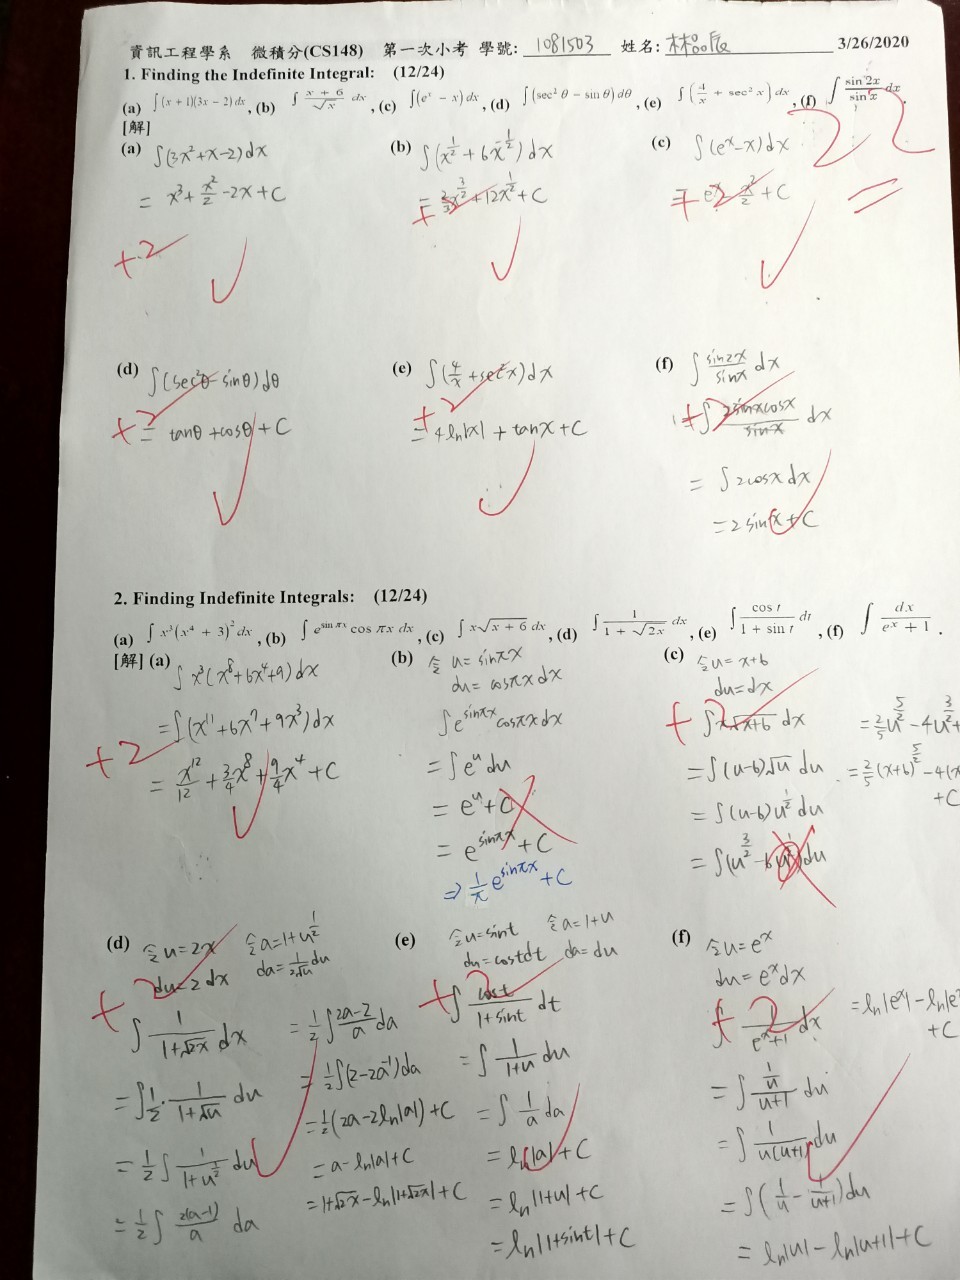 資訊工程學系 微積分(CS148) 第一次小考 學號: 1081503 姓名: 林品辰 3/26/2020
1. Finding the Indefinite Integral: (12/24)
(a) ∫(x + 1)(3x − 2) dx , (b) ∫ (x + 6)/√x dx , (c) ∫(eˣ − x) dx , (d) ∫(sec² θ − sin θ) dθ , (e) ∫(4/x + sec² x) dx , (f) ∫ sin 2x / sin x dx .
[解]
22
(a) ∫(3x²+x-2)dx
= x³+x²/2-2x+C
+2
(b) ∫(x^(1/2)+6x^(-1/2))dx
= 2/3x^(3/2)+12x^(1/2)+C
+2
(c) ∫(eˣ-x)dx
= eˣ-x²/2+C
+2
(d) ∫(sec²θ-sinθ)dθ
= tanθ+cosθ+C
+2
(e) ∫(4/x+sec²x)dx
= 4ln|x|+tanx+C
+2
(f) ∫ sin2x/sinx dx
= ∫ 2sinxcosx/sinx dx
= ∫2cosxdx
= 2sinx+C
+2
2. Finding Indefinite Integrals: (12/24)
(a) ∫ x³(x⁴ + 3)² dx , (b) ∫ e^(sin πx) cos πx dx , (c) ∫ x√(x + 6) dx , (d) ∫ 1/(1 + √(2x)) dx , (e) ∫ cos t/(1 + sin t) dt , (f) ∫ dx/(eˣ + 1) .
[解] (a) ∫x³(x⁸+6x⁴+9)dx
=∫(x¹¹+6x⁷+9x³)dx
= x¹²/12+3/4x⁸+9/4x⁴+C
+2
(b) 令u=sinπx
du=cosπxdx
∫e^(sinπx)cosπxdx
=∫eᵘdu
=eᵘ+C
=e^(sinπx)+C
⇒ 1/π e^(sinπx)+C
(c) 令u=x+6
du=dx
∫x√(x+6) dx
=∫(u-6)√u du
=∫(u-6)u^(1/2)du
=∫(u^(3/2)-6u^(1/2))du
=2/5u^(5/2)-4u^(3/2)+
=2/5(x+6)^(5/2)-4(x
+C
+2
(d) 令u=2x 令a=1+u^(1/2)
du=2dx da=1/(2√u)du
∫ 1/(1+√2x) dx
=∫1/2·1/(1+√u) du
=1/2∫1/(1+u^(1/2)) du
=1/2∫2(a-1)/a da
=1/2∫(2a-2)/a da
=1/2∫(2-2a⁻¹)da
=1/2(2a-2ln|a|)+C
=a-ln|a|+C
=1+√2x-ln|1+√2x|+C
+2
(e) 令u=sint 令a=1+u
du=costdt da=du
∫ cost/(1+sint) dt
=∫1/(1+u) du
=∫1/a da
=ln|a|+C
=ln|1+u|+C
=ln|1+sint|+C
+2
(f) 令u=eˣ
du=eˣdx
∫ 1/(eˣ+1) dx
=∫(1/u)/(u+1) du
=∫1/(u(u+1))du
=∫(1/u-1/(u+1))du
=ln|u|-ln|u+1|+C
=ln|eˣ|-ln|eˣ
+C
+2